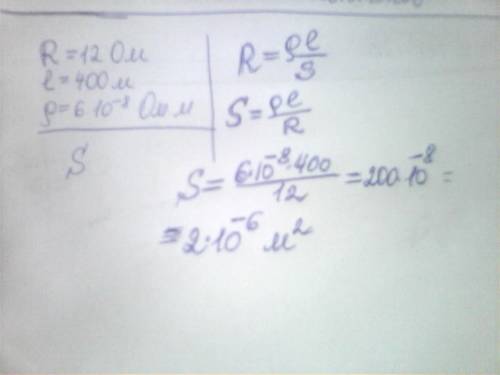 R = 12 Ом
l = 400 м
ρ = 6·10⁻⁸ Ом м
S
R = ρl/S
S = ρl/R
S = 6·10⁻⁸·400/12 = 200·10⁻⁸ =
= 2·10⁻⁶ м²